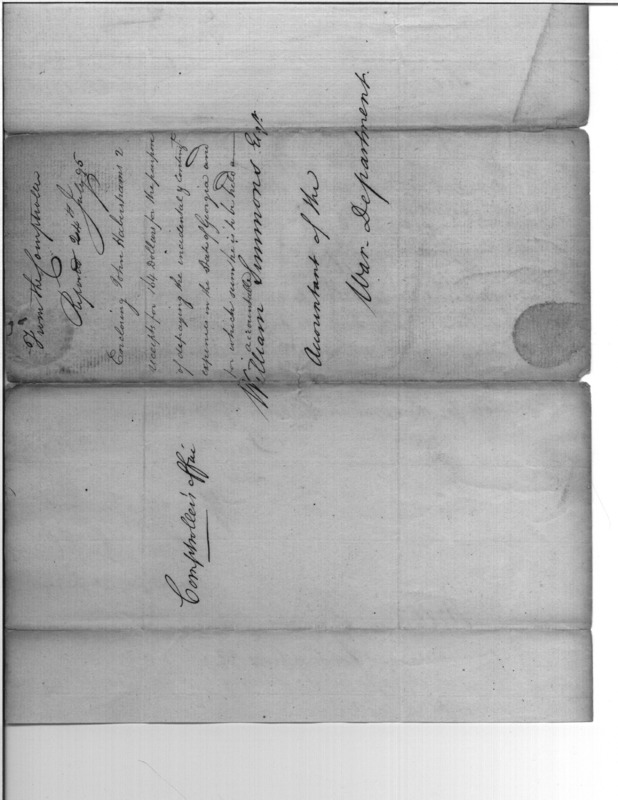 From the Comptroller
Reported
July 95
Enclosing John Habershams 2
receipts for Dollars for the purpose
of defraying the incidental & contingt
expences in the State of Georgia and
for which sum he is to be held
accountable
William Simmons Esqr.
Accountant of the
War Department.
Comptroller's office